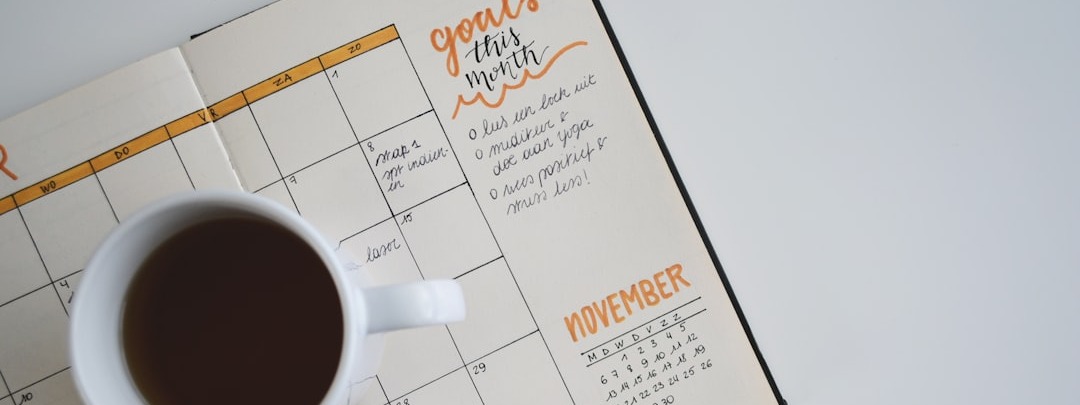 R
WO
DO
VR
ZA
ZO
1
4
7
8
stap 1
spr indien-
en
laser
15
10
28
29
goals
this
month
o lees een boek uit
o mediteer &
doe aan yoga
o wees positief &
stress less!
NOVEMBER
M D W D V Z Z
1 2 3 4 5
6 7 8 9 10 11 12
13 14 15 16 17 18 19
21 22 23 24 25 26
30